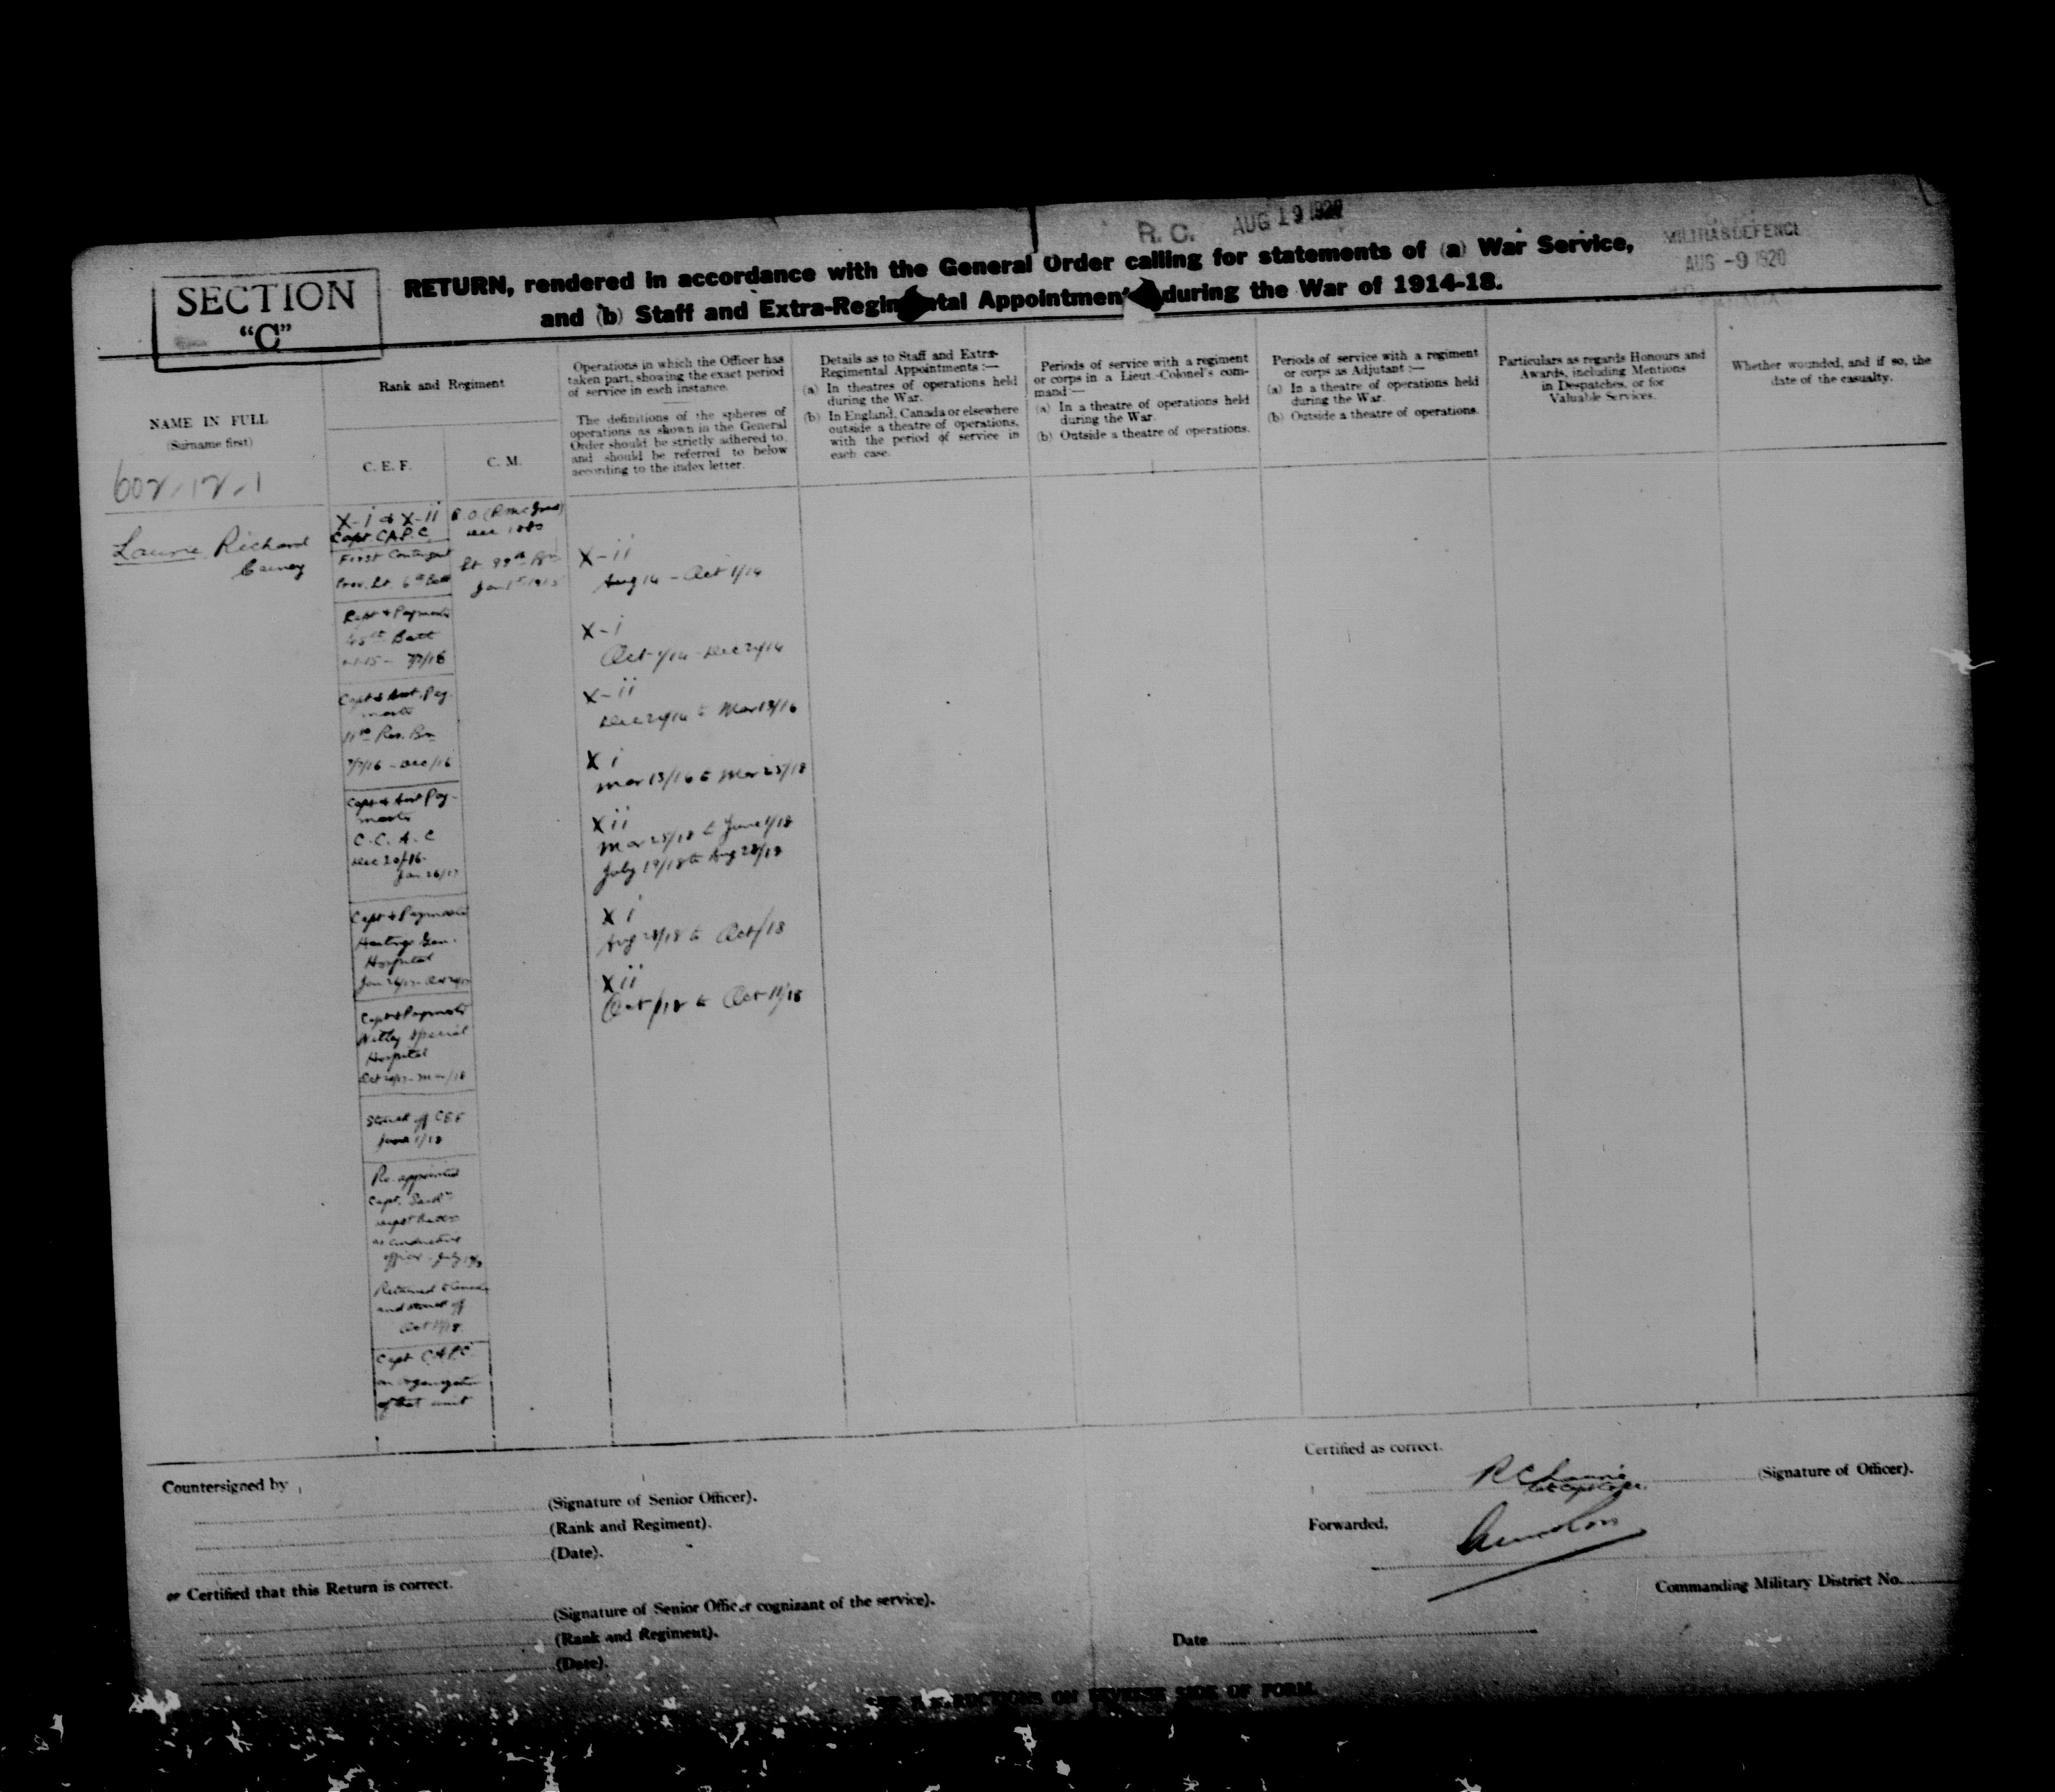 R.C. AUG 19 1920
MILITIA & DEFENCE
AUG -9 1920
SECTION
"C"
RETURN, rendered in accordance with the General Order calling for statements of (a) War Service,
and (b) Staff and Extra-Regimental Appointments during the War of 1914-18.
NAME IN FULL
(Surname first)
602-12-1
Rank and Regiment
C. E. F.
C. M.
Operations in which the Officer has
taken part, showing the exact period
of service in each instance.
The definitions of the spheres of
operations as shown in the General
Order should be strictly adhered to,
and should be referred to below
according to the index letter.
Details as to Staff and Extra-
Regimental Appointments :—
(a) In theatres of operations held
during the War.
(b) In England, Canada or elsewhere
outside a theatre of operations,
with the period of service in
each case.
Periods of service with a regiment
or corps in a Lieut.-Colonel's com-
mand :—
(a) In a theatre of operations held
during the War.
(b) Outside a theatre of operations.
Periods of service with a regiment
or corps as Adjutant :—
(a) In a theatre of operations held
during the War.
(b) Outside a theatre of operations.
Particulars as regards Honours and
Awards, including Mentions
in Despatches, or for
Valuable Services.
Whether wounded, and if so, the
date of the casualty.
Laurie Richard
X-i & X-ii
Capt. C.A.P.C.
First Contingent
Prov. Lt. 6th Batt
Capt & Paymaster
Batt
7/7/16
Capt & Asst. Pay-
master
Res. Bn
7/7/16 - Dec/16
Capt & Asst Pay-
master
C.C.A.C
Dec 20/16-
Jan 26/17
Capt & Paymaster
Hastings Gen.
Hospital
Capt & Paymaster
Netley Special
Hospital
Struck off CEF
June 1/18
Re-appointed
Capt.
as conducting
officer - July
Returned to Canada
and struck off
Oct 11/18
Capt C.A.P.C.
on organization
of that unit
Jan 1st 1915
X-ii
Aug 14 - Oct 1/14
X-i
Oct 1/14 - Dec 21/14
X-ii
Dec 21/14 to Mar 13/16
X i
Mar 13/16 to Mar 25/18
X ii
Mar 25/18 to June 1/18
July 19/18 to Aug 28/18
X i
Aug 28/18 to Oct /18
X ii
Oct /18 to Oct 11/18
Countersigned by
(Signature of Senior Officer).
(Rank and Regiment).
(Date).
or Certified that this Return is correct.
(Signature of Senior Officer cognizant of the service).
(Rank and Regiment).
(Date).
Certified as correct.
R C Laurie
(Signature of Officer).
Forwarded,
Commanding Military District No.
Date
SEE DIRECTIONS ON REVERSE SIDE OF FORM.